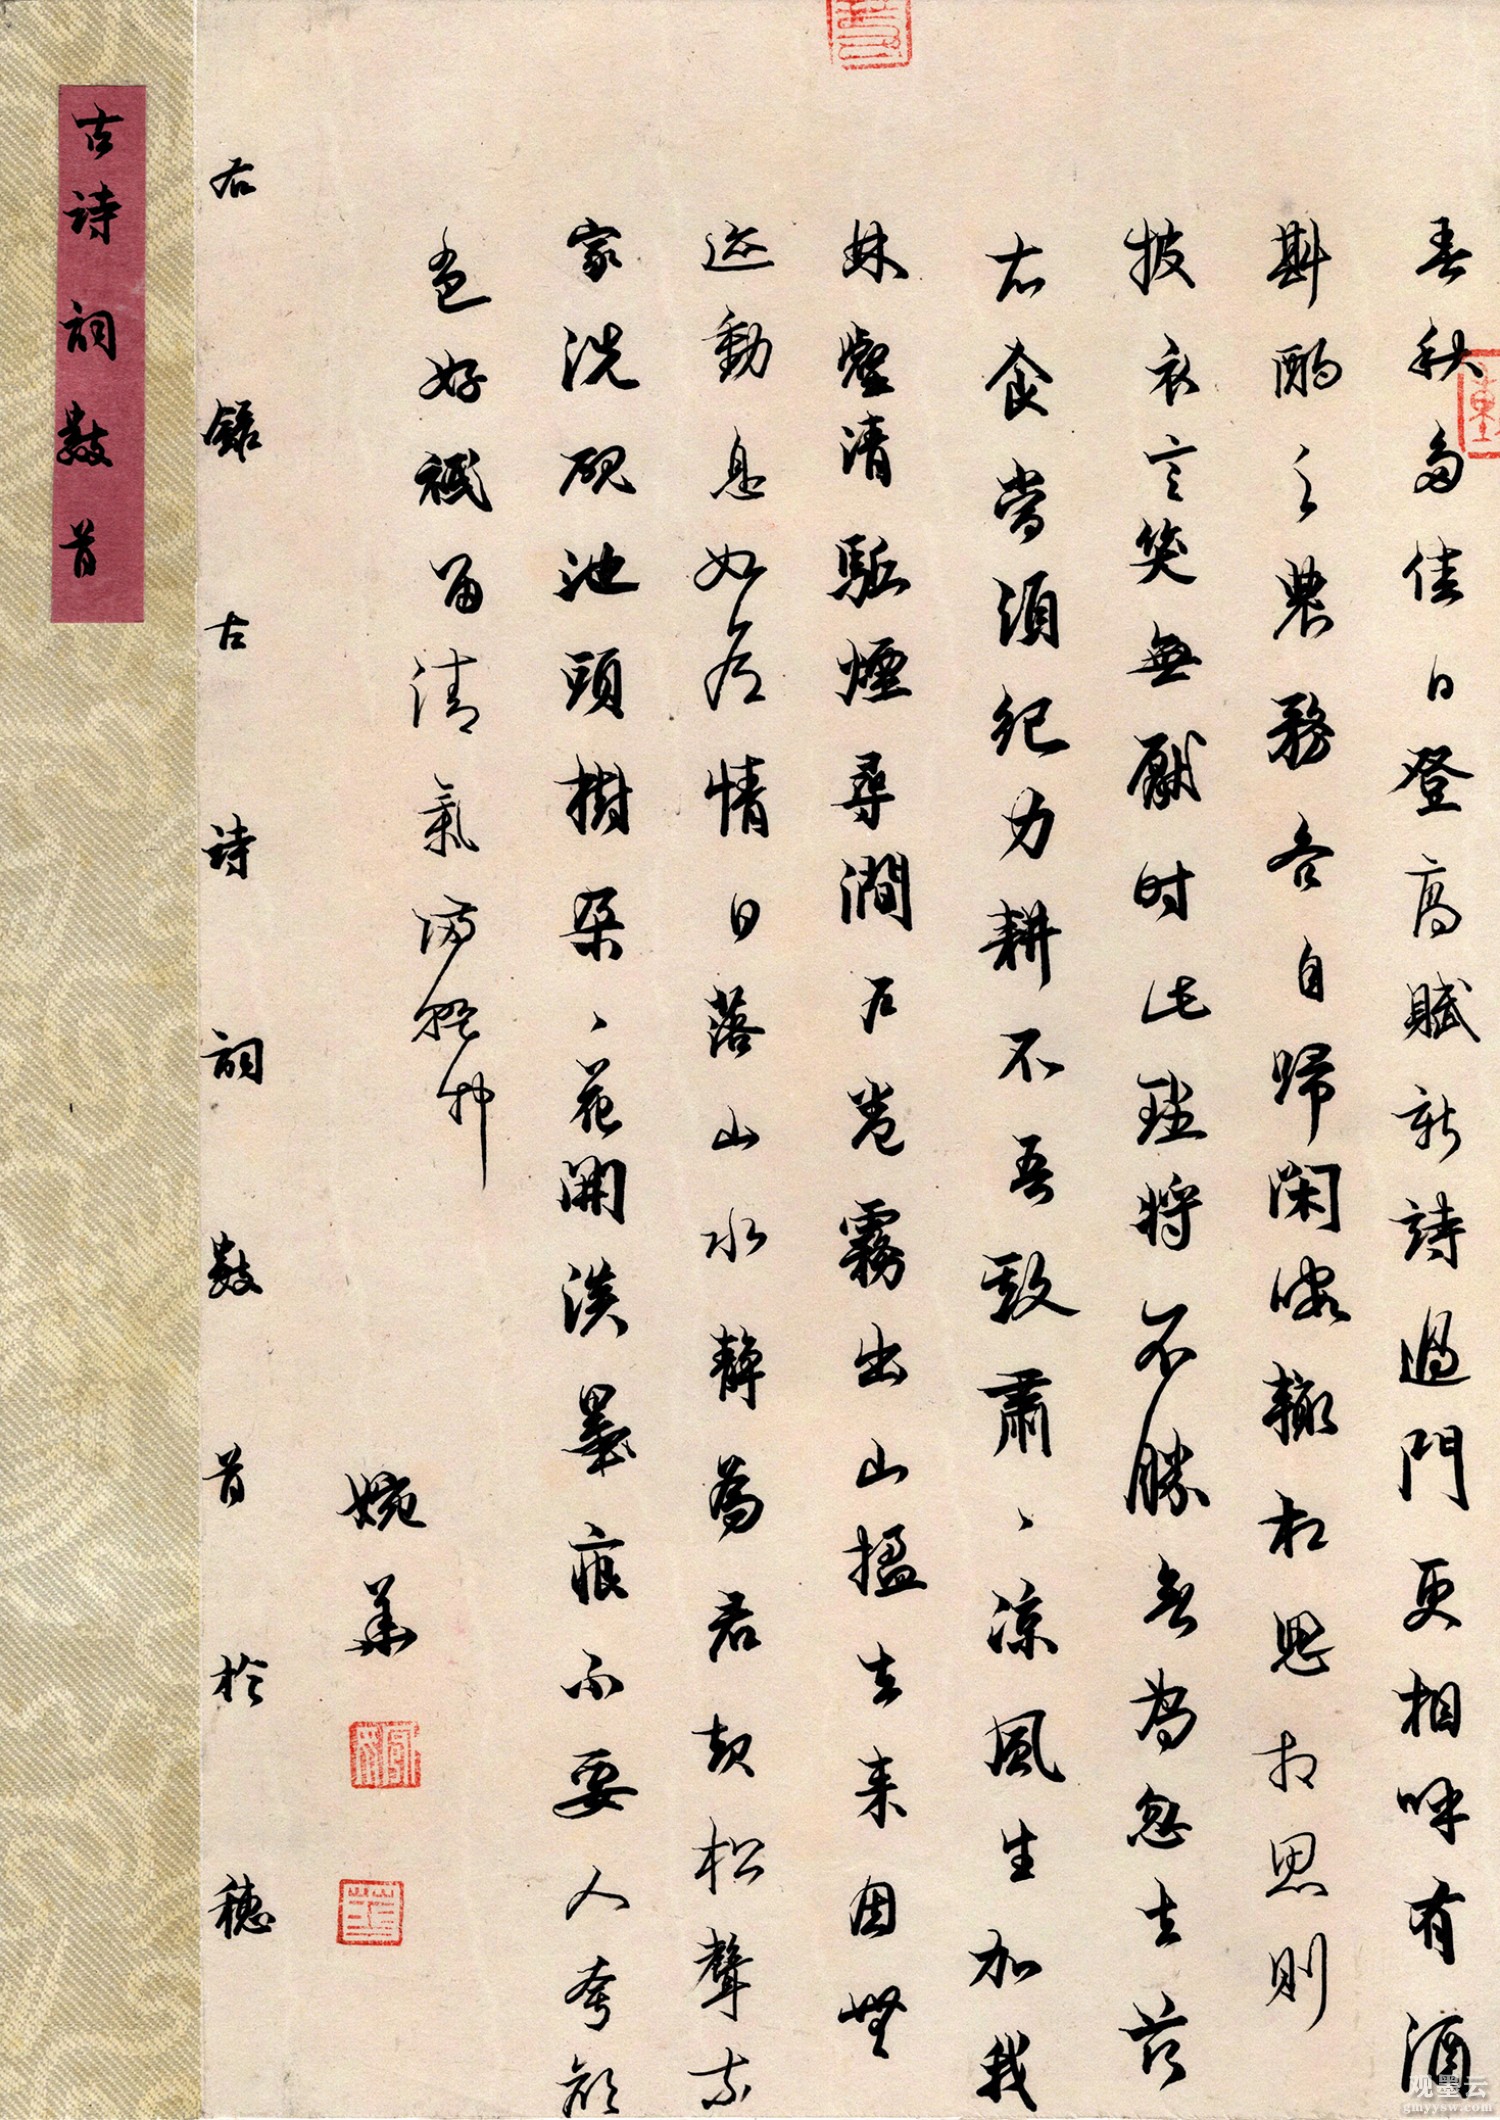 春秋多佳日登高賦新詩過門更相呼有酒
斟酌之農務各自歸閑暇輒相思相思則
披衣言笑無厭時此理將不勝無為忽去茲
衣食當須紀力耕不吾欺肅〻涼風生加我
林壑清驅煙尋澗户卷霧出山楹去來固無
迹動息如有情日落山水靜為君起松聲我
家洗硯池頭樹朵〻花開淡墨痕不要人夸顏
色好祇留清氣滿乾坤
婉華
右錄古詩詞數首於穗
古詩詞數首
观墨云
gmyysw.com